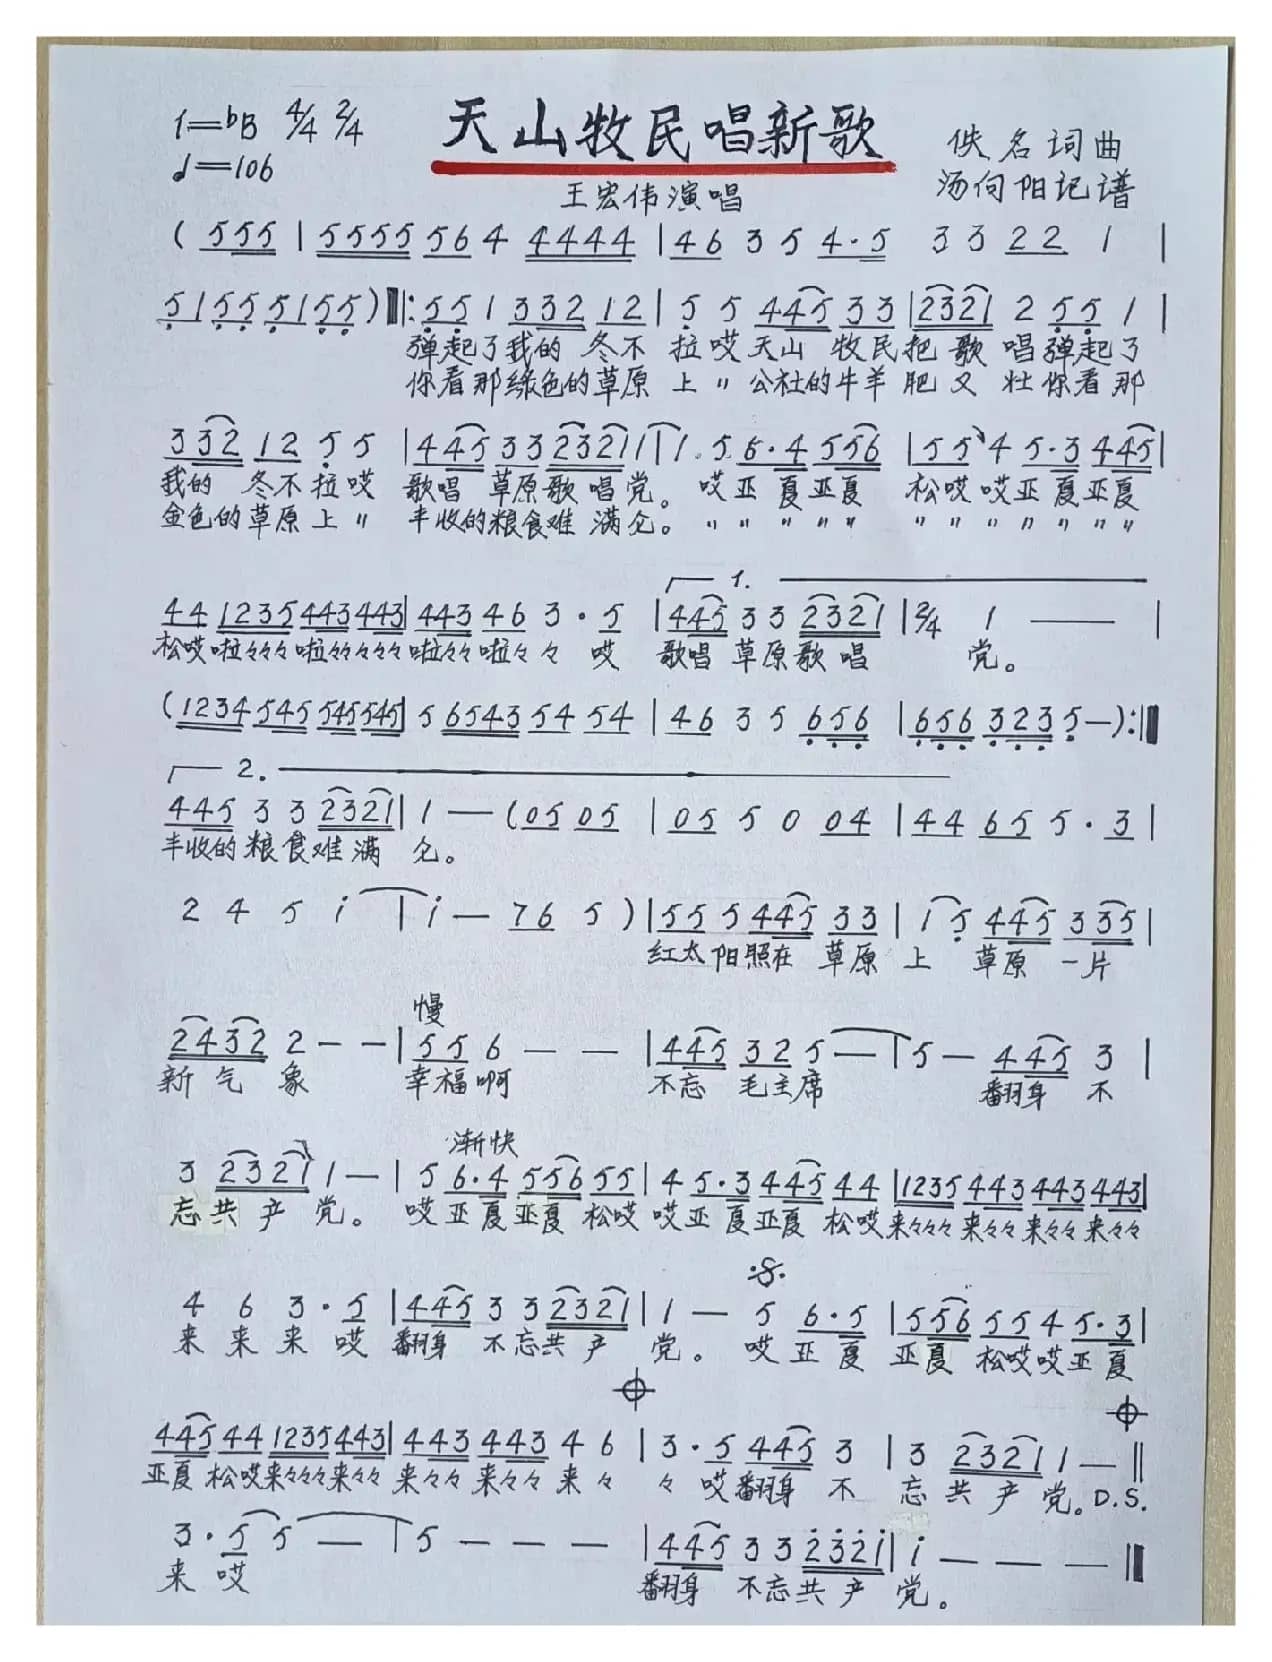 天山牧民唱新歌
1=bB 4/4 2/4
♩=106
佚名词曲
王宏伟演唱
汤向阳记谱
( 5 5 5 | 5 5 5 5 5 6 4 4 4 4 4 | 4 6 3 5 4 · 5 3 3 2 2 1 |
5 1 5 5 5 1 5 5 ) ‖: 5 5 1 3 3 2 1 2 | 5 5 4 4 5 3 3 | 2 3 2 1 2 5 5 1 |
弹起了我的 冬不 拉哎天山 牧民把 歌 唱弹起了
你看那绿色的草原 上 〃 公社的牛羊 肥 又 壮你看那
3 3 2 1 2 5 5 | 4 4 5 3 3 2 3 2 1 1 | 1 . 5 6 · 4 5 5 6 | 5 5 4 5 · 3 4 4 5 |
我的 冬不拉哎 歌唱 草原歌唱党。 哎亚 夏亚夏 松哎哎亚夏亚夏
金色的草原上 〃 丰收的粮食难 满仑。 〃 〃 〃 〃 〃 〃 〃 〃 〃 〃 〃 〃
1.
4 4 1 2 3 5 4 4 3 4 4 3 | 4 4 3 4 6 3 · 5 | 4 4 5 3 3 2 3 2 1 | 2/4 1 — |
松哎啦々々々啦々々々々 啦々々啦々 々 哎 歌唱 草原歌 唱 党。
( 1 2 3 4 5 4 5 5 4 5 5 4 5 | 5 6 5 4 3 5 4 5 4 | 4 6 3 5 6 5 6 | 6 5 6 3 2 3 5 — ) :‖
2.
4 4 5 3 3 2 3 2 1 | 1 — ( 0 5 0 5 | 0 5 5 0 0 4 | 4 4 6 5 5 · 3 |
丰收的粮食难 满 仑。
2 4 5 i | i — 7 6 5 ) | 5 5 5 4 4 5 3 3 | 1 5 4 4 5 3 3 5 |
红太 阳照在 草原 上 草原 一片
慢
2 4 3 2 2 — — | 5 5 6 — — | 4 4 5 3 2 5 — | 5 — 4 4 5 3 |
新 气 象 幸福啊 不忘 毛主席 翻身 不
渐快
3 2 3 2 1 1 — | 5 6 · 4 5 5 6 5 5 | 4 5 · 3 4 4 5 4 4 | 1 2 3 5 4 4 3 4 4 3 4 4 3 |
忘共产 党。 哎亚 夏亚夏 松哎 哎亚 夏亚夏 松哎来々々々来々々来々々来々々
𝄋
4 6 3 · 5 | 4 4 5 3 3 2 3 2 1 | 1 — 5 6 · 5 | 5 5 6 5 5 4 5 · 3 |
来 来 来 哎 翻身 不忘共产 党。 哎 亚 夏 亚夏 松哎哎亚夏
𝄌 𝄌
4 4 5 4 4 1 2 3 5 4 4 3 | 4 4 3 4 4 3 4 6 | 3 · 5 4 4 5 3 | 3 2 3 2 1 1 — ‖
亚夏 松哎来々々々来々々 来々々来々々来 々 々 哎翻身 不 忘 共 产 党。D.S.
3 · 5 5 — | 5 — — — | 4 4 5 3 3 2 3 2 1 | i — — — ‖
来 哎 翻身 不忘共产 党。